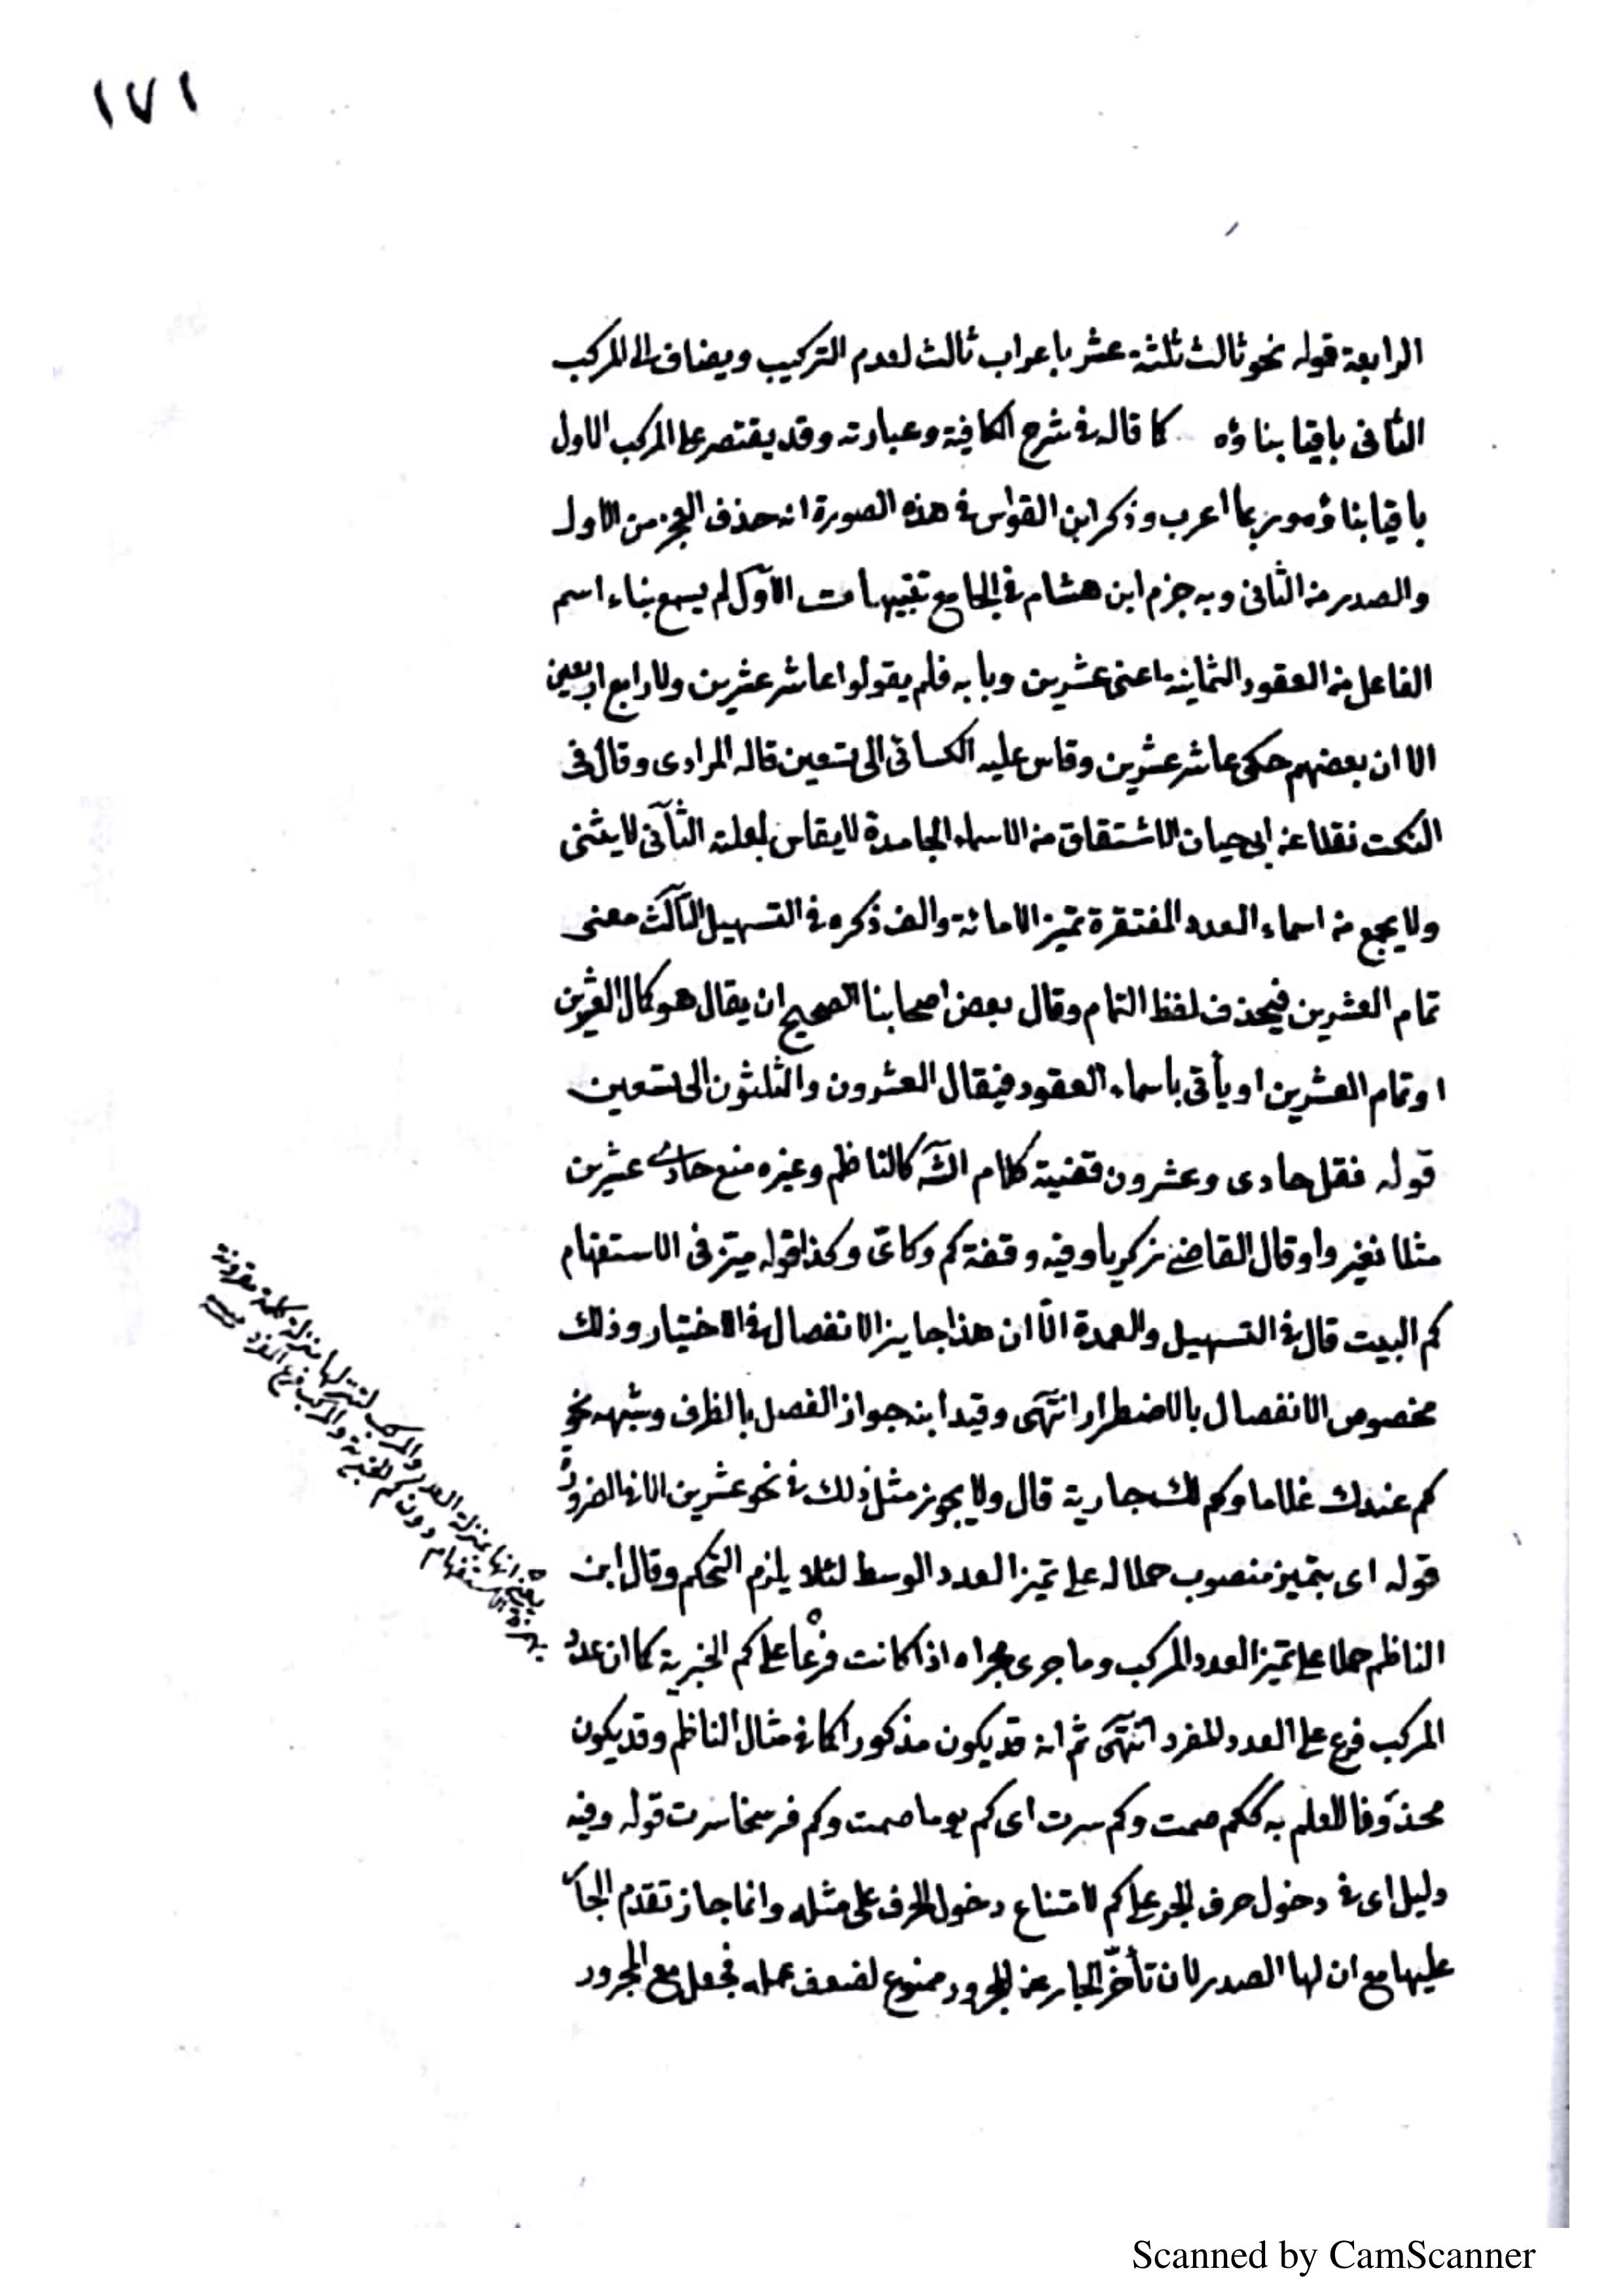 ١٧١
الرابعة قوله نحو ثالث ثلثة عشر باعراب ثالث لعدم التركيب ويضاف الى المركب
الثانى باقيا بناؤه كما قاله فى شرح الكافية وعبارته وقد يقتصر على المركب الاول
باقيا بناؤه وربما اعرب وذكر ابن القواس فى هذه الصورة انه حذف العجز من الاول
والصدر من الثانى وبه جزم ابن هشام فى الجامع تنبيهات الاول لم يسمع بناء اسم
الفاعل من العقود الثمانية اعنى عشرين وبابه فلم يقولوا عاشر عشرين ولا رابع اربعين
الا ان بعضهم حكى عاشر عشرين وقاس عليه الكسائى الى تسعين قاله المرادى وقال فى
النكت نقلا عن ابى حيان الاشتقاق من الاسماء الجامدة لا يقاس لعلته الثانى لا يثنى
ولا يجمع من اسماء العدد المفتقرة تميز الا مائة والف ذكره فى التسهيل الثالث معنى
تمام العشرين فيحذف لفظ التمام وقال بعض اصحابنا الصحيح ان يقال هو كمال العشرين
او تمام العشرين او يأتى باسماء العقود فيقال العشرون والثلثون الى تسعين
قوله فقل حادى وعشرون قضية كلام الشه كالناظم وغيره منع حادى عشرين
مثلا بغير واو قال القاضى زكريا وفيه وقفة كم وكائ وكذا قوله ميز فى الاستفهام
كم البيت قال فى التسهيل والعمدة الّا ان هذا جايز الانفصال فى الاختيار وذلك
مخصوص الانفصال بالاضطرار انتهى وقيد ابنه جواز الفصل بالظرف وشبهه نحو
كم عندك غلاما وكم لك جارية قال ولا يجوز مثل ذلك فى نحو عشرين الا فى الضرورة
قوله اى بتميز منصوب حملا له على تميز العدد الوسط لئلا يلزم التحكم وقال ابن
الناظم حملا على تميز العدد المركب وما جرى مجراه اذا كانت فرعا على كم الخبرية كما ان عدد
المركب فرع على العدد المفرد انتهى ثم انه قد يكون مذكورا كما فى مثال الناظم وقد يكون
محذوفا للعلم به ككم صمت وكم سرت اى كم يوما صمت وكم فرسخا سرت قوله وفيه
دليل اى فى دخول حرف الجر على كم لامتناع دخول الحرف على مثله وانما جاز تقدم الجار
عليها مع ان لها الصدر لان تأخر الجار عن المجرور ممنوع لضعف عمله فجعل مع المجرور
يعنى انها بمنزلة العدد المركب لتنزلها منزلة كلمة مقرونة
بهمزة الاستفهام دون كم الخبرية والمركب فرع المفرد
Scanned by CamScanner